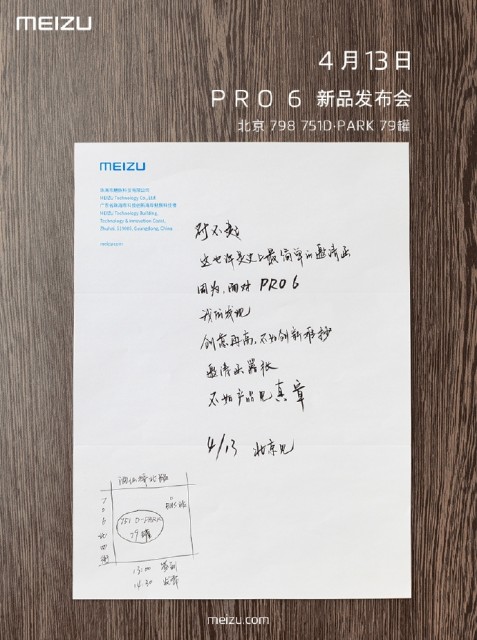 MEIZU
4月13日
PRO 6 新品发布会
北京 798 751D·PARK 79罐
MEIZU
珠海市魅族科技有限公司
MEIZU Technology Co., Ltd
广东省珠海市科技创新海岸魅族科技楼
MEIZU Technology Building
Technology & Innovation Coast,
Zhuhai, 519085, Guangdong, China.
meizu.com
对不起
这也许是史上最简单的邀请函
因为,面对 PRO 6
我们发现
创意再高,不如创新
邀请函嚣张
不如产品见真章
4/13 北京见
酒仙桥北路
751 D-PARK
79罐
13:00 签到
14:30
meizu.com